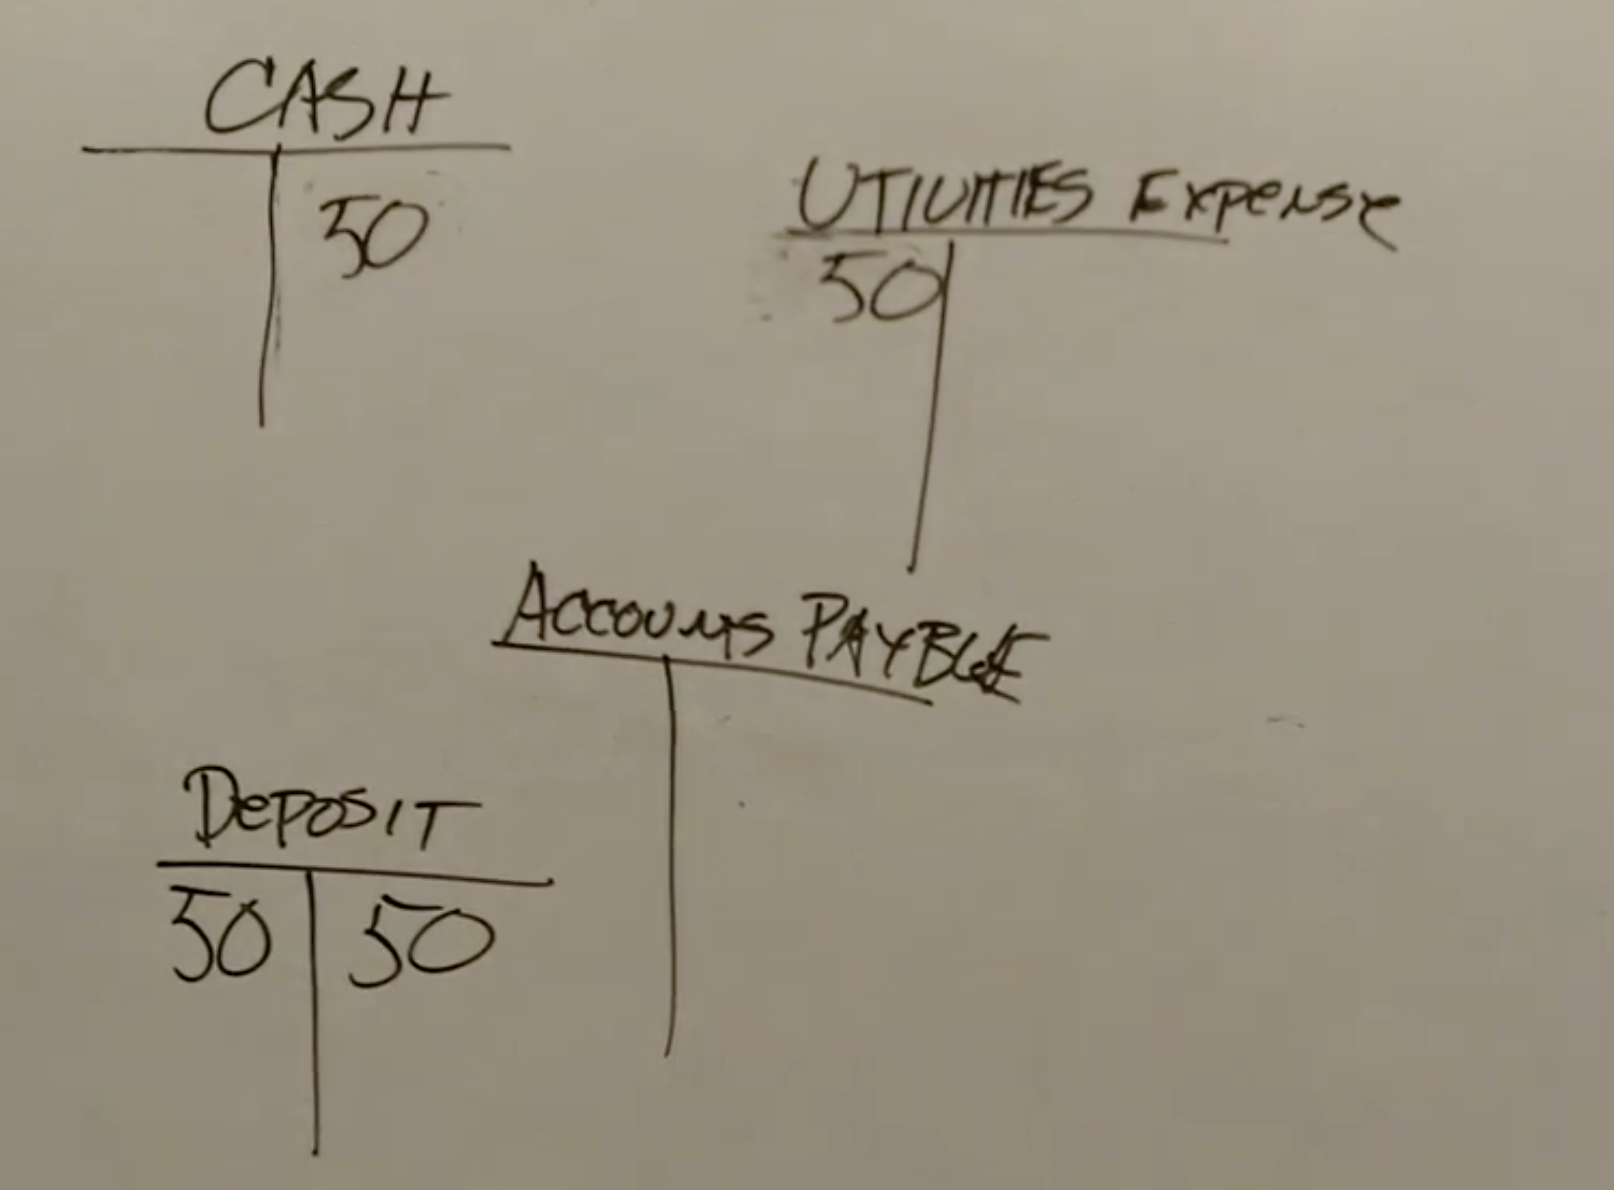 CASH
50
UTILITIES Expense
50
Accounts PAYBLE
Deposit
50 50